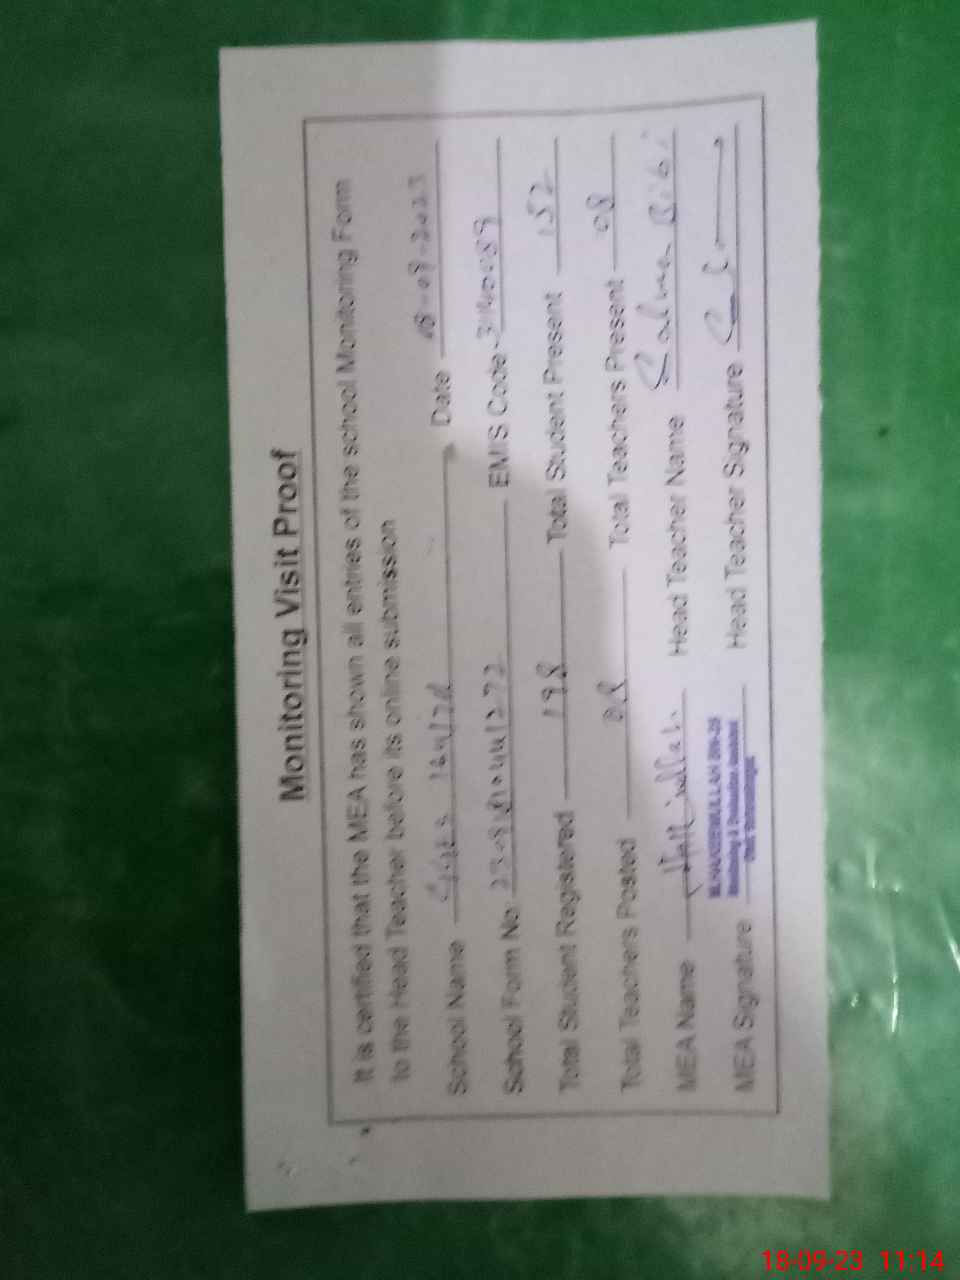 Monitoring Visit Proof
It is certified that the MEA has shown all entries of the school Monitoring Form
to the Head Teacher before its online submission
School Name GGES Date 18-09-2023
School Form No: EMIS Code 31140089
Total Student Registered 198 Total Student Present 152
Total Teachers Posted 08 Total Teachers Present 08
MEA Name Head Teacher Name Salma Bibi
MEA Signature Head Teacher Signature
18-09-23 11:14